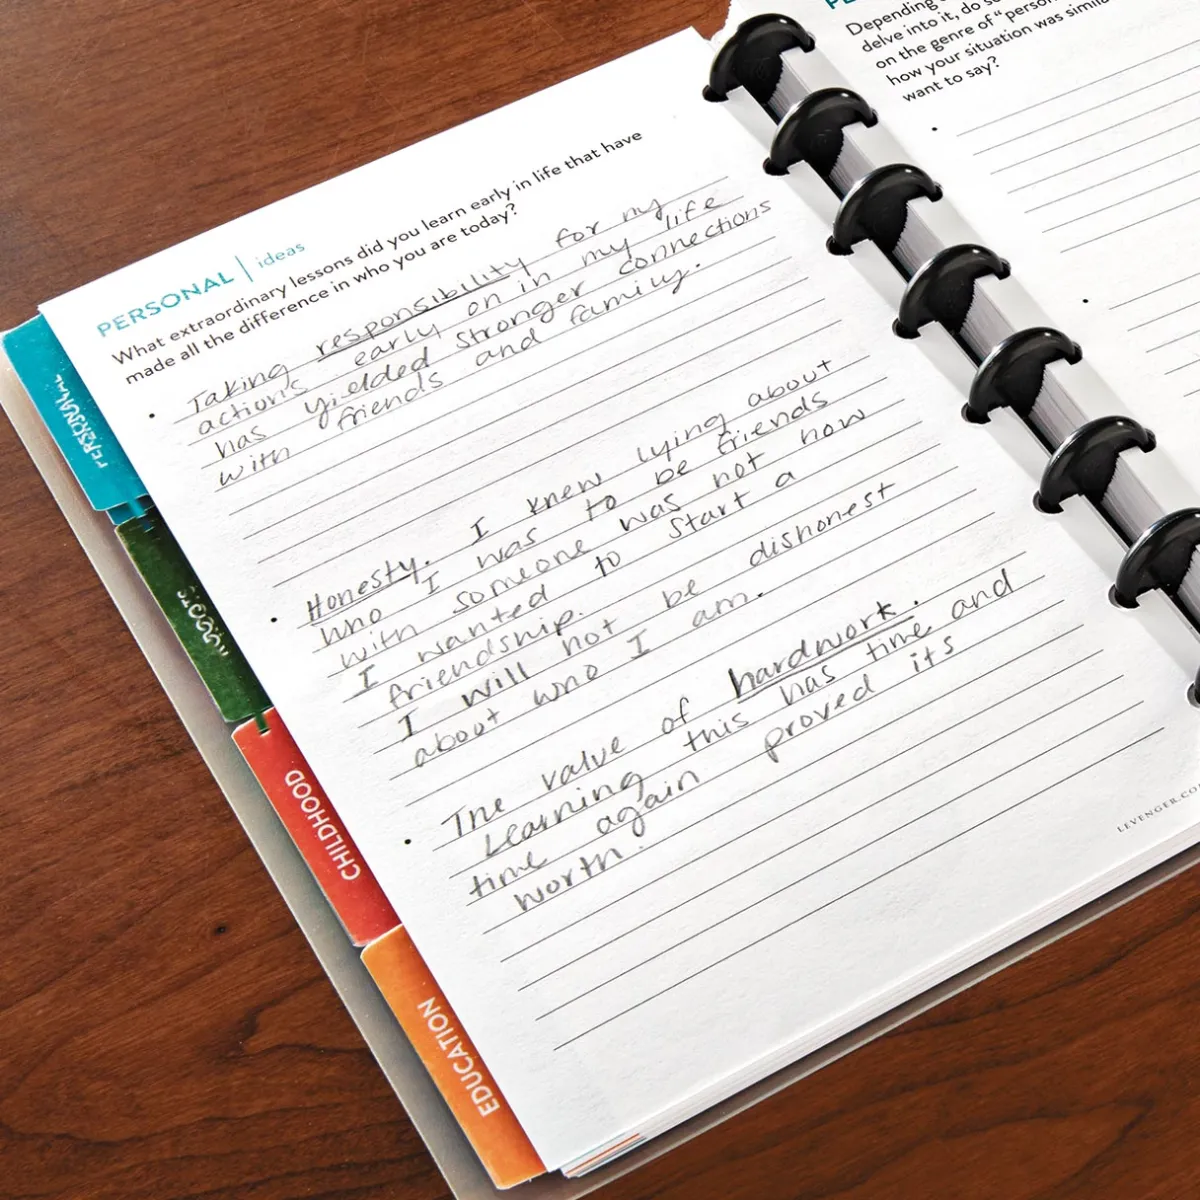 PERSONAL | ideas
What extraordinary lessons did you learn early in life that have
made all the difference in who you are today?
• Taking responsibility for my
actions early on in my life
has yielded stronger connections
with friends and family.
• Honesty. I knew lying about
who I was to be friends
with someone was not how
I wanted to start a
friendship.
I will not be dishonest
about who I am.
• The value of hardwork.
Learning this has time and
time again proved its
worth.
LEVENGER.CO
PERSONAL
CHILDHOOD
EDUCATION
Depending
delve into it, do
on the genre of "person
how your situation was simila
want to say?